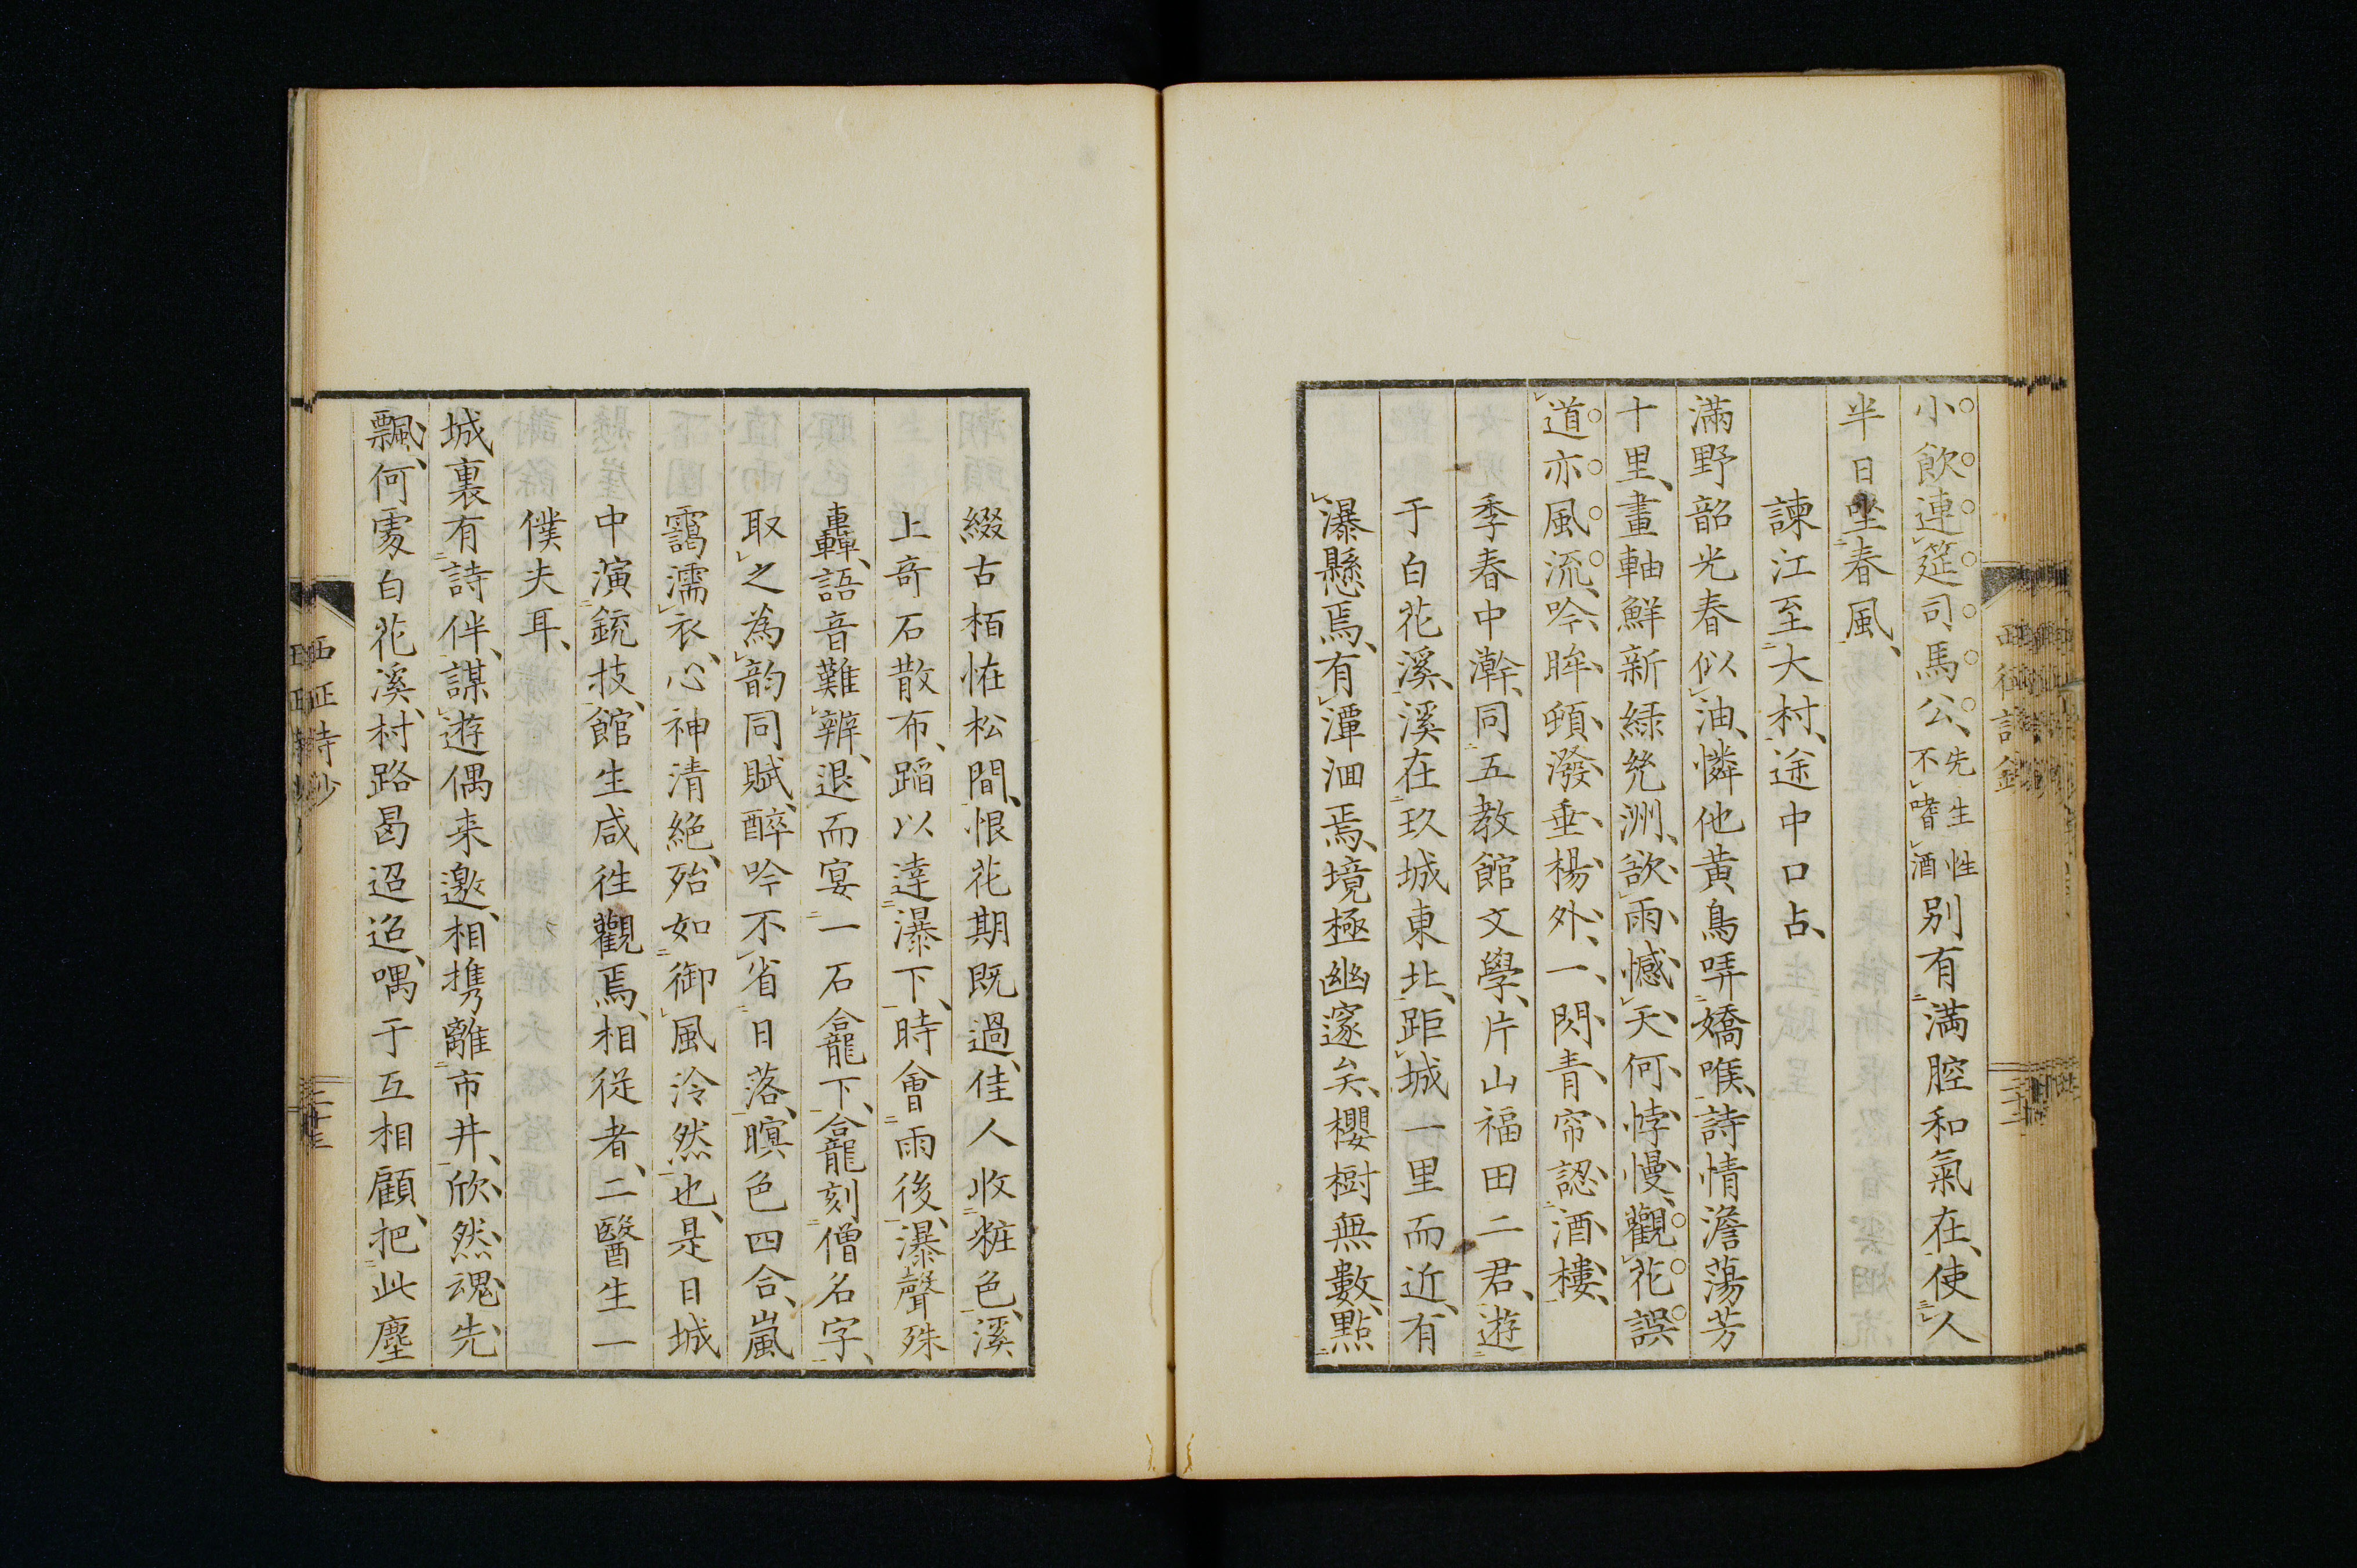 小飲連筵司馬公、先生性不嗜酒別有満腔和氣在、使人
半日坐春風、
諫江至大村、途中口占、
滿野韶光春似油、憐他黄鳥哢嬌喉、詩情澹蕩芳
十里、畫軸鮮新緑繞洲、欲雨、憾天何悖慢、觀花誤
道亦風流、吟眸頻潑垂楊外、一閃青帘認酒樓、
季春中澣、同五教館文學、片山福田二君、遊
于白花溪、溪在玖城東北、距城一里而近、有
瀑懸焉、有潭洄焉、境極幽邃矣、櫻樹無數、點
綴古栢恠松間、恨花期既過、佳人收粧色、溪
上奇石散布、蹈以達瀑下、時會雨後、瀑聲殊
轟、語音難辨、退而宴一石龕下、龕刻僧名字、
取之為韵同賦、醉吟不省日落、暝色四合、嵐
靄濡衣、心神清絶、殆如御風泠然也、是日城
中演銃技、館生咸徃觀焉、相從者、二醫生一
僕夫耳、
城裏有詩伴、謀遊偶来邀、相携離市井、欣然魂先
飄、何處白花溪、村路曷迢迢、喁于互相顧、把此塵
西征詩鈔
二十三